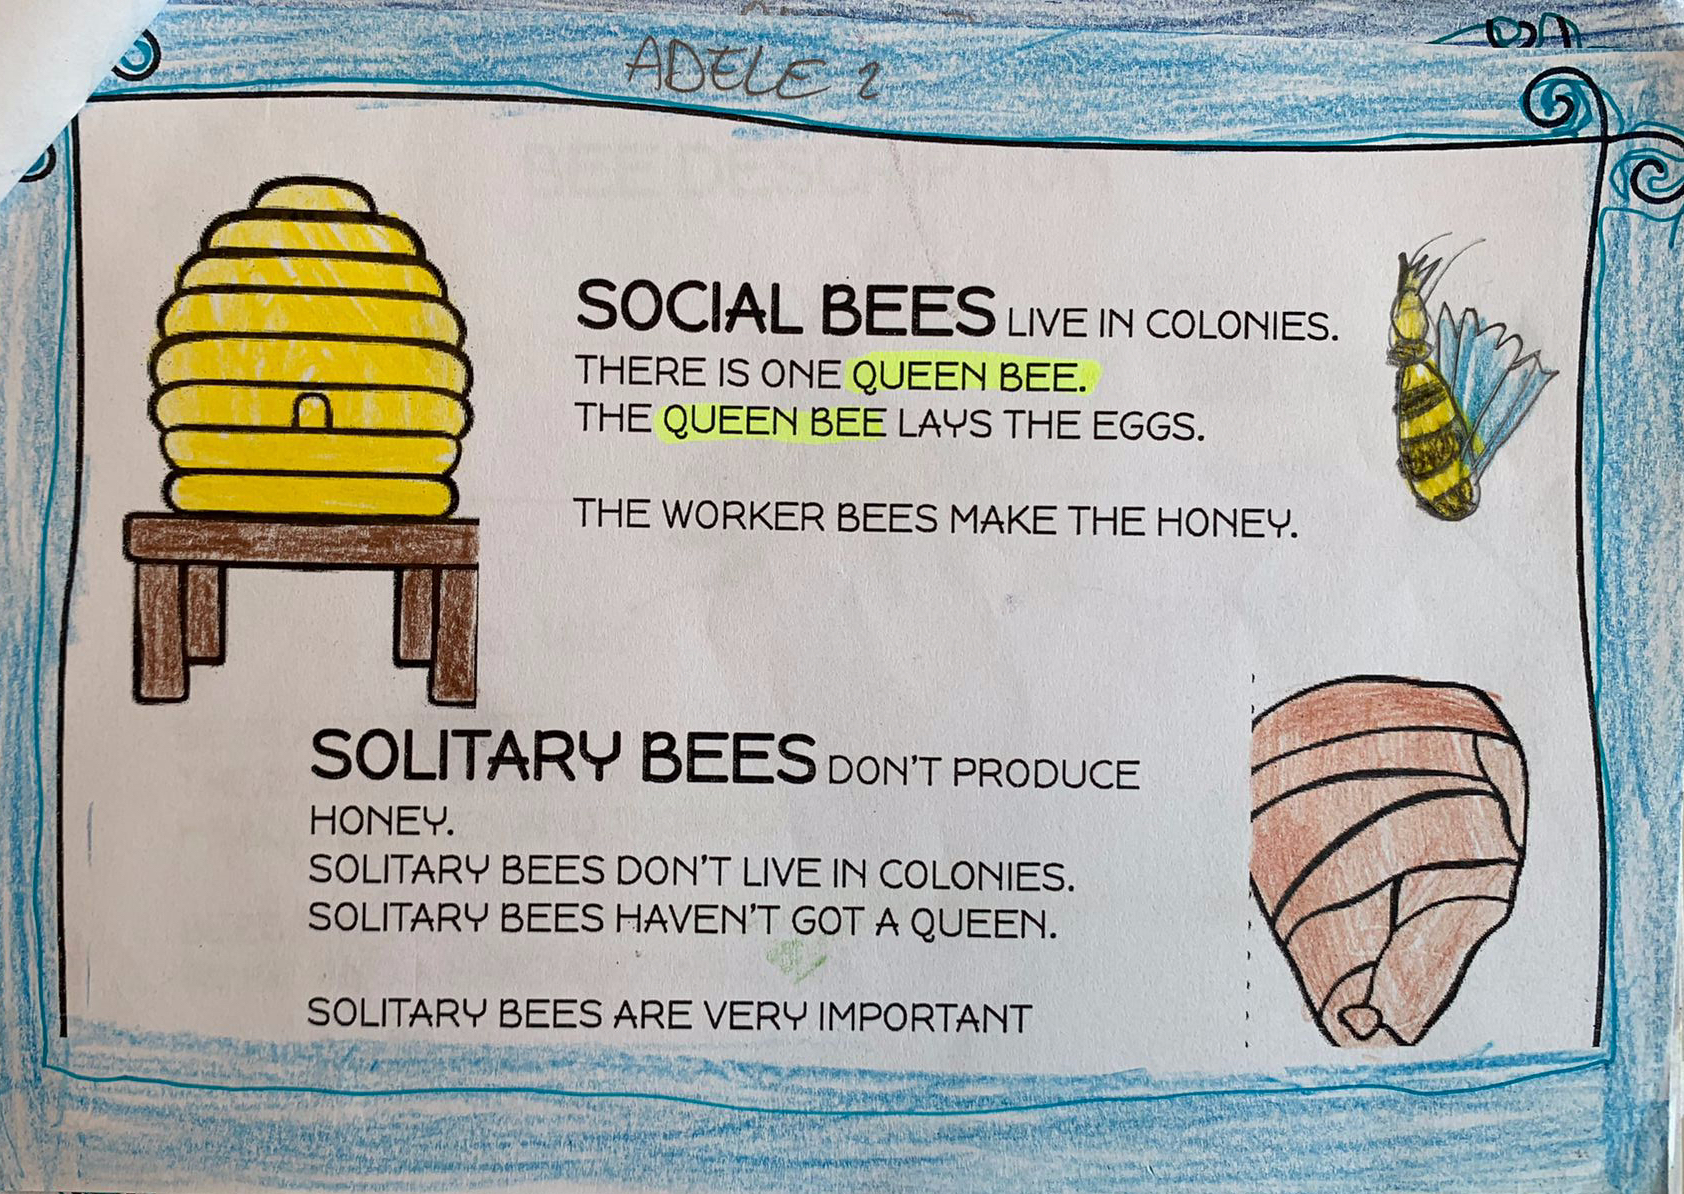 ADELE 2
SOCIAL BEES LIVE IN COLONIES.
THERE IS ONE QUEEN BEE.
THE QUEEN BEE LAYS THE EGGS.
THE WORKER BEES MAKE THE HONEY.
SOLITARY BEES DON'T PRODUCE
HONEY.
SOLITARY BEES DON'T LIVE IN COLONIES.
SOLITARY BEES HAVEN'T GOT A QUEEN.
SOLITARY BEES ARE VERY IMPORTANT